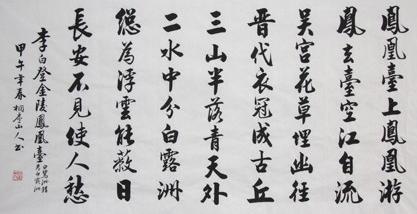 鳳凰臺上鳳凰游
鳳去臺空江自流
吴宫花草埋幽徑
晋代衣冠成古丘
三山半落青天外
二水中分白露洲
總為浮雲能蔽日
長安不見使人愁
李白登金陵鳳凰臺
甲午年春桐山人书